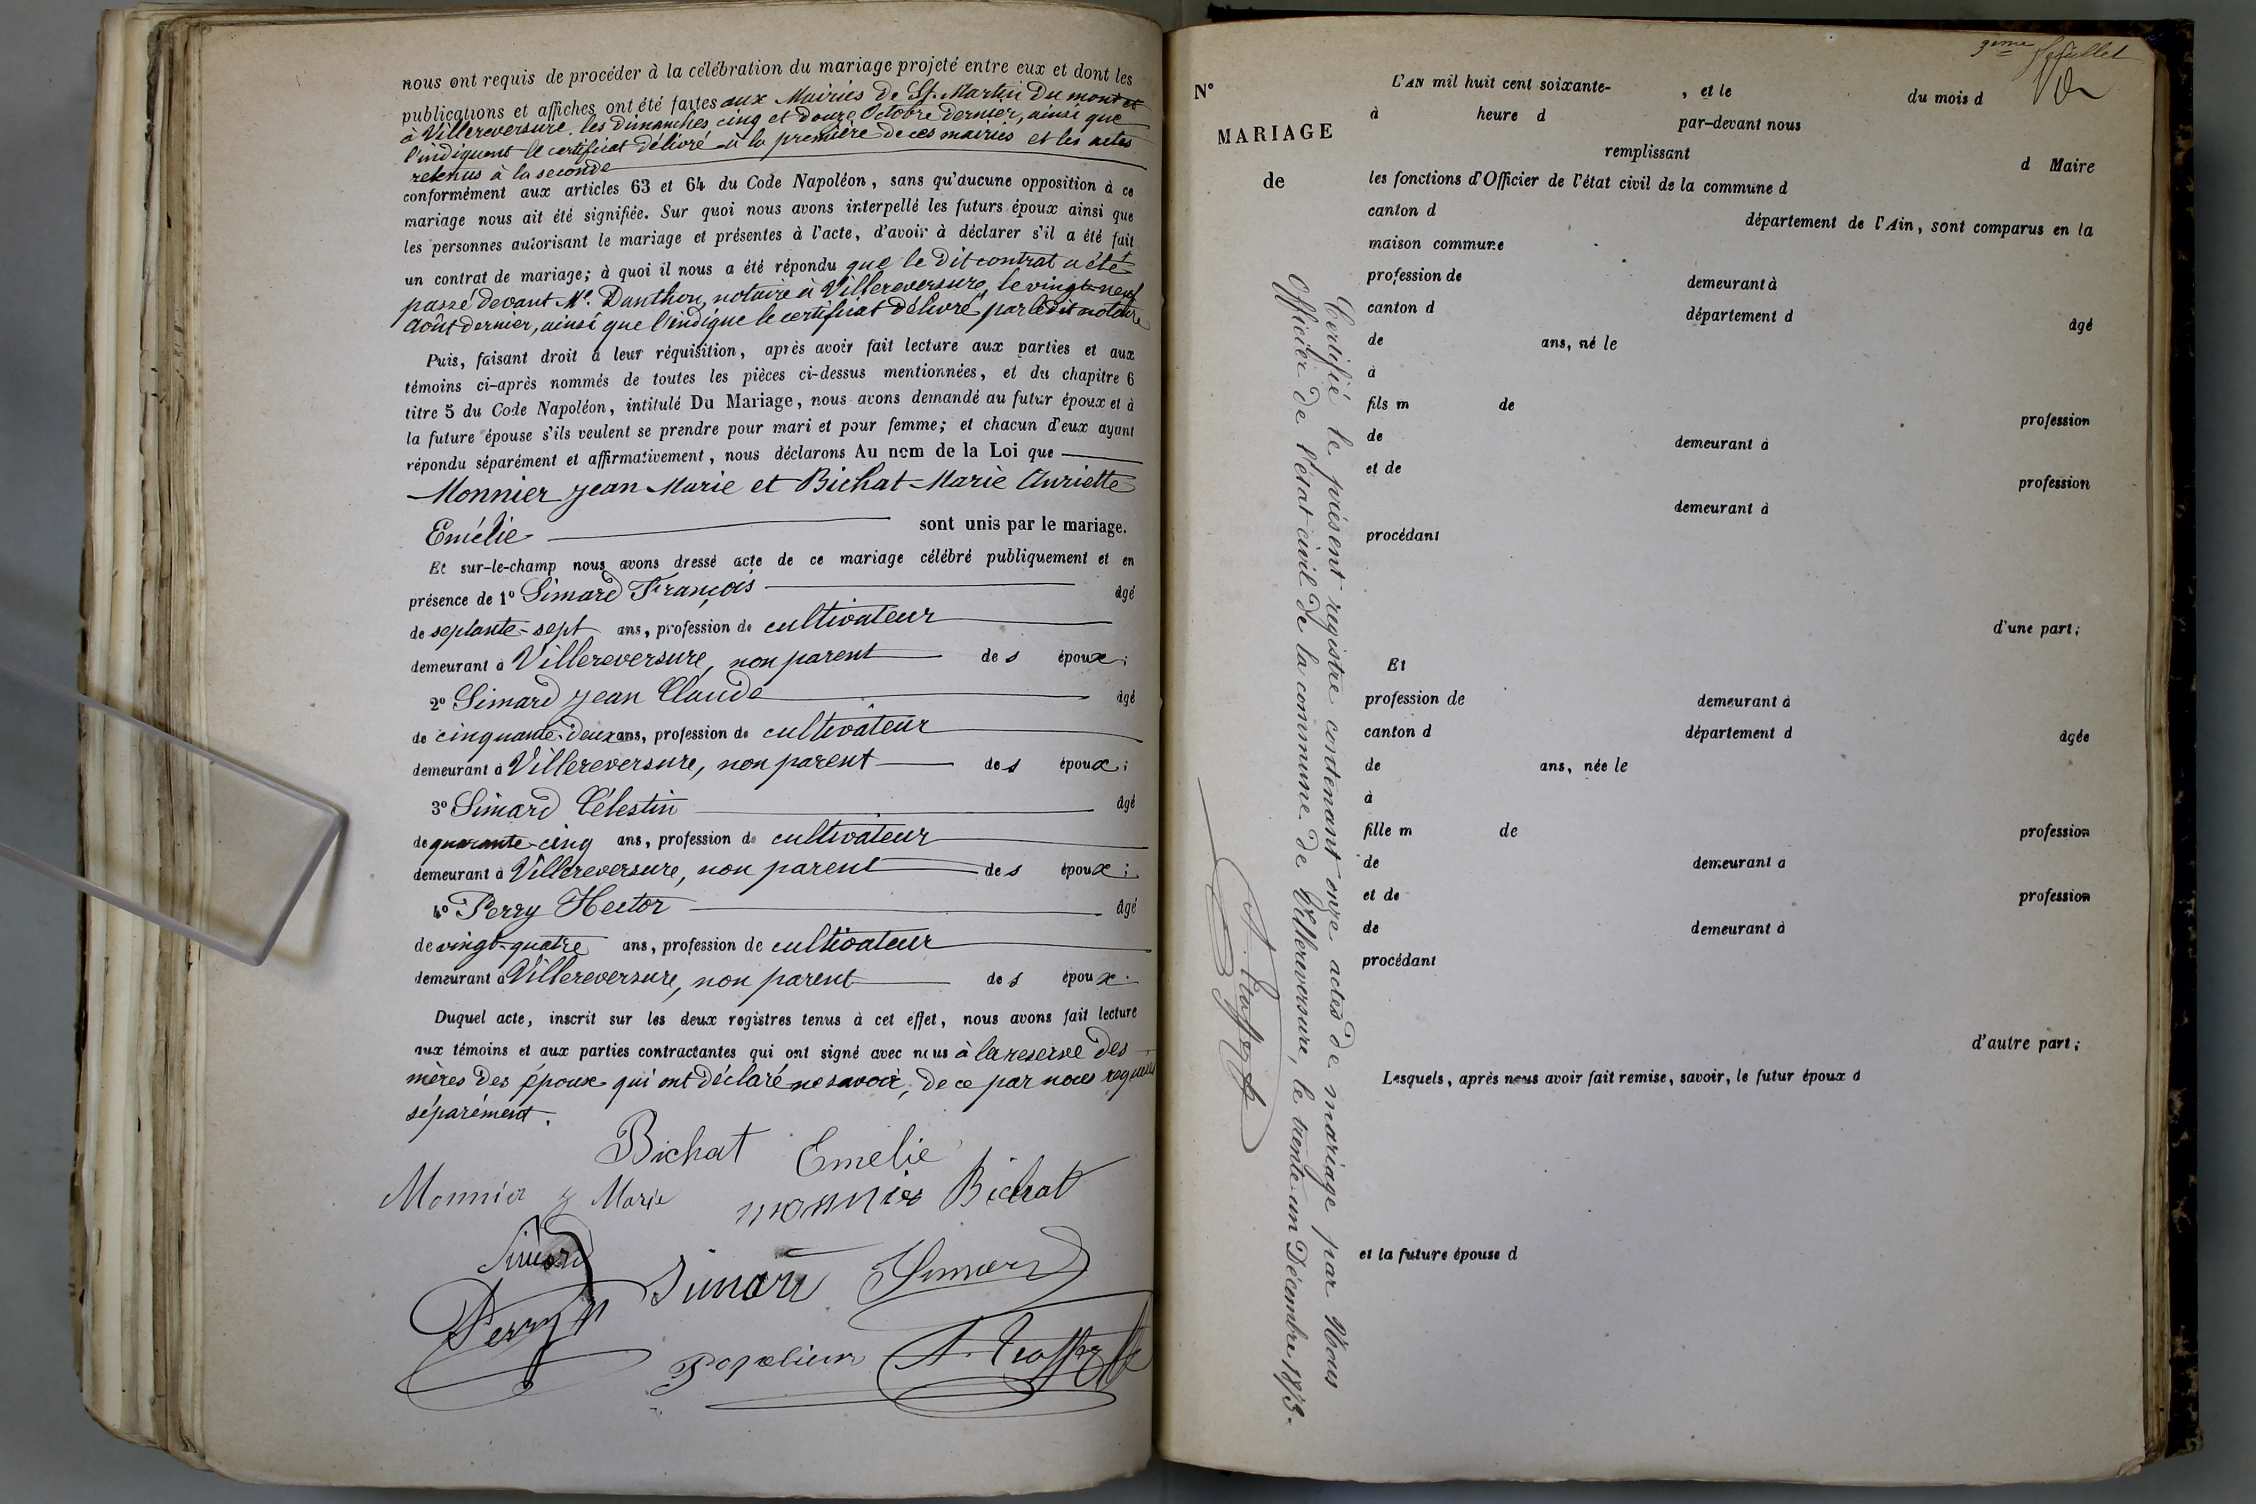 nous ont requis de procéder à la célébration du mariage projeté entre eux et dont les
publications et affiches ont été faites aux Mairies de St. Martin du mont et
à Villereversure, les dimanches cinq et douze Octobre dernier, ainsi que
l'indiquent le certificat délivré à la première de ces mairies et les actes
retenus à la seconde
conformément aux articles 63 et 64 du Code Napoléon, sans qu'aucune opposition à ce
mariage nous ait été signifiée. Sur quoi nous avons interpellé les futurs époux ainsi que
les personnes autorisant le mariage et présentes à l'acte, d'avoir à déclarer s'il a été fait
un contrat de mariage; à quoi il nous a été répondu que le dit contrat a été
passé devant Me. Danthon, notaire à Villereversure, le vingt-neuf
août dernier, ainsi que l'indique le certificat délivré par le dit notaire
Puis, faisant droit à leur réquisition, après avoir fait lecture aux parties et aux
témoins ci-après nommés de toutes les pièces ci-dessus mentionnées, et du chapitre 6
titre 5 du Code Napoléon, intitulé Du Mariage, nous avons demandé au futur époux et à
la future épouse s'ils veulent se prendre pour mari et pour femme; et chacun d'eux ayant
répondu séparément et affirmativement, nous déclarons Au nom de la Loi que
Monnier Jean Marie et Bichat Marie Auriette
Emélie sont unis par le mariage.
Et sur-le-champ nous avons dressé acte de ce mariage célébré publiquement et en
présence de 1o Simard François âgé
de septante-sept ans, profession de cultivateur
demeurant à Villereversure, non parent des époux;
2o Simard Jean Claude âgé
de cinquante-deux ans, profession de cultivateur
demeurant à Villereversure, non parent des époux;
3o Simard Célestin âgé
de quarante-cinq ans, profession de cultivateur
demeurant à Villereversure, non parent des époux;
4o Perry Hector âgé
de vingt-quatre ans, profession de cultivateur
demeurant à Villereversure, non parent des époux.
Duquel acte, inscrit sur les deux registres tenus à cet effet, nous avons fait lecture
aux témoins et aux parties contractantes qui ont signé avec nous à la reserve des
mères des époux qui ont déclaré ne savoir, de ce par nous requises
séparément.
Bichat Emelie
Monnier J Marie monnier Bichat
Simard
Simard Simard
Perry H
9eme feuillet
No
MARIAGE
de
L'AN mil huit cent soixante- , et le du mois d
à heure d par-devant nous
remplissant d Maire
les fonctions d'Officier de l'état civil de la commune d
canton d département de l'Ain, sont comparus en la
maison commune
profession de demeurant à
canton d département d âgé
de ans, né le
à
fils m de profession
de demeurant à
et de profession
demeurant à
procédant
d'une part;
Et
profession de demeurant à
canton d département d âgée
de ans, née le
à
fille m de profession
de demeurant à
et de profession
de demeurant à
procédant
d'autre part;
Lesquels, après nous avoir fait remise, savoir, le futur époux d
et la future épouse d
Certifié le présent registre contenant onze actes de mariage par Nous
Officier de l'état civil de la commune de Villereversure, le trente-un Décembre 1873.